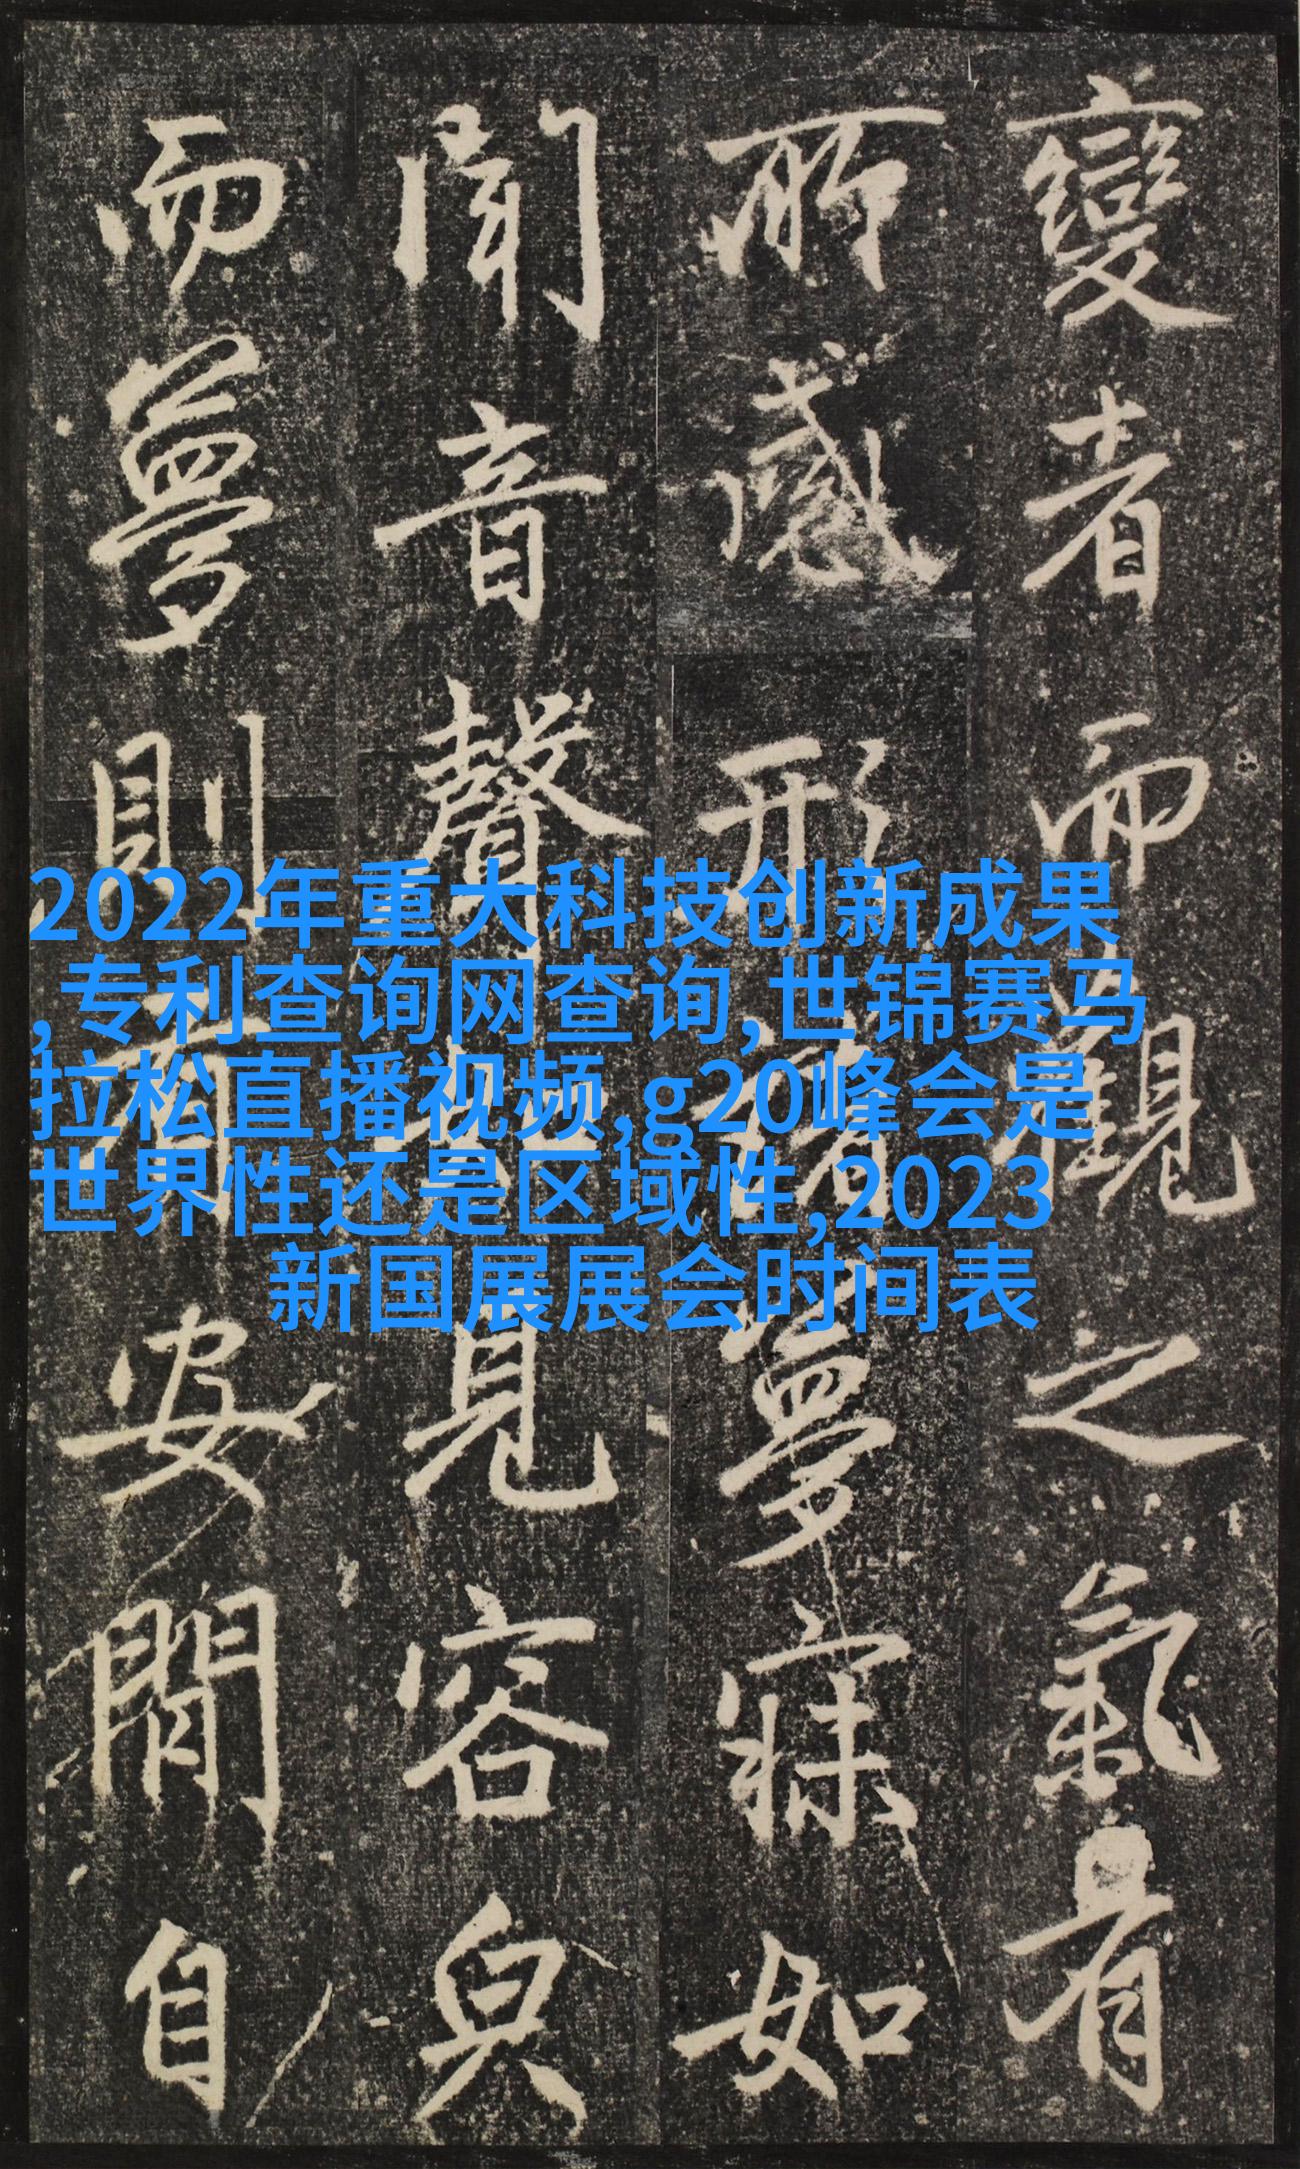 變者而觀之氣有
所感形諸夢寐如
聞音聲見容皃
而夢則安閒自
2022年重大科技创新成果
,专利查询网查询,世锦赛马
拉松直播视频,g20峰会是
世界性还是区域性,2023
新国展展会时间表